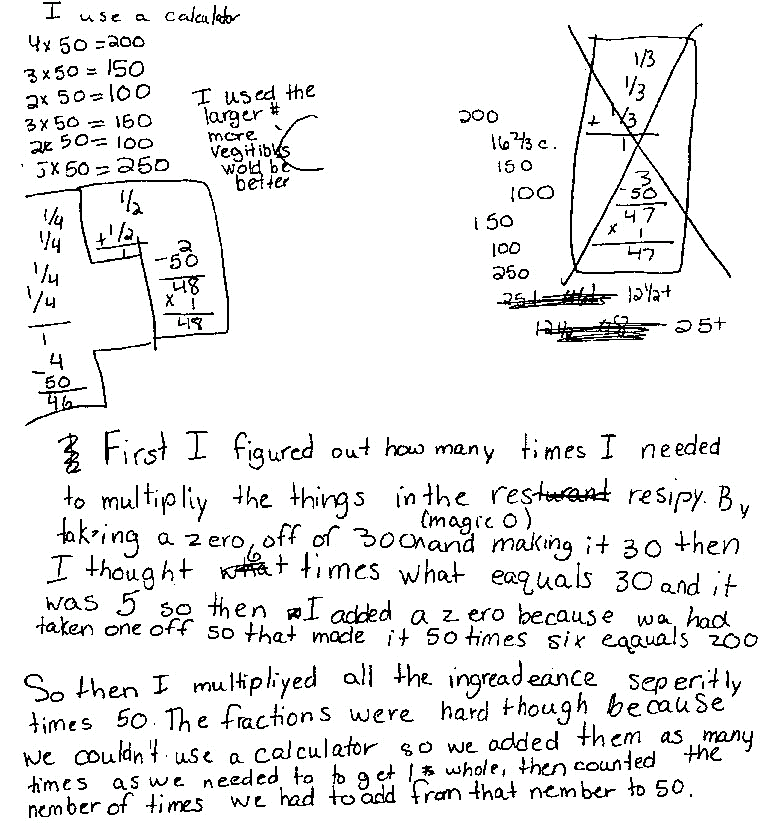 I use a calculator
4 x 50 = 200
3 x 50 = 150
2x 50 = 100
3 x 50 = 150
2x 50 = 100
5 x 50 = 250
I used the
larger #
more
vegitibls
wold be
better
1/4
1/4
1/4
1/4
1
4
- 50
46
1/2
+ 1/2
1
2
- 50
48
x 1
48
200
16 2/3 c.
150
100
150
100
250
12 1/2 +
25+
1/3
1/3
+ 1/3
1
3
- 50
47
x 1
47
First I figured out how many times I needed
to multipliy the things in the resturant resipy. By
(magic 0)
taking a zero off of 300 and making it 30 then
I thought 6 times what eaquals 30 and it
was 5 so then I added a zero because wa had
taken one off so that made it 50 times six eqauals 200
So then I multipliyed all the ingreadeance seperitly
times 50. The fractions were hard though because
we couldn't use a calculator so we added them as many
times as we needed to to get 1 whole, then counted the
nember of times we had to add from that nember to 50.